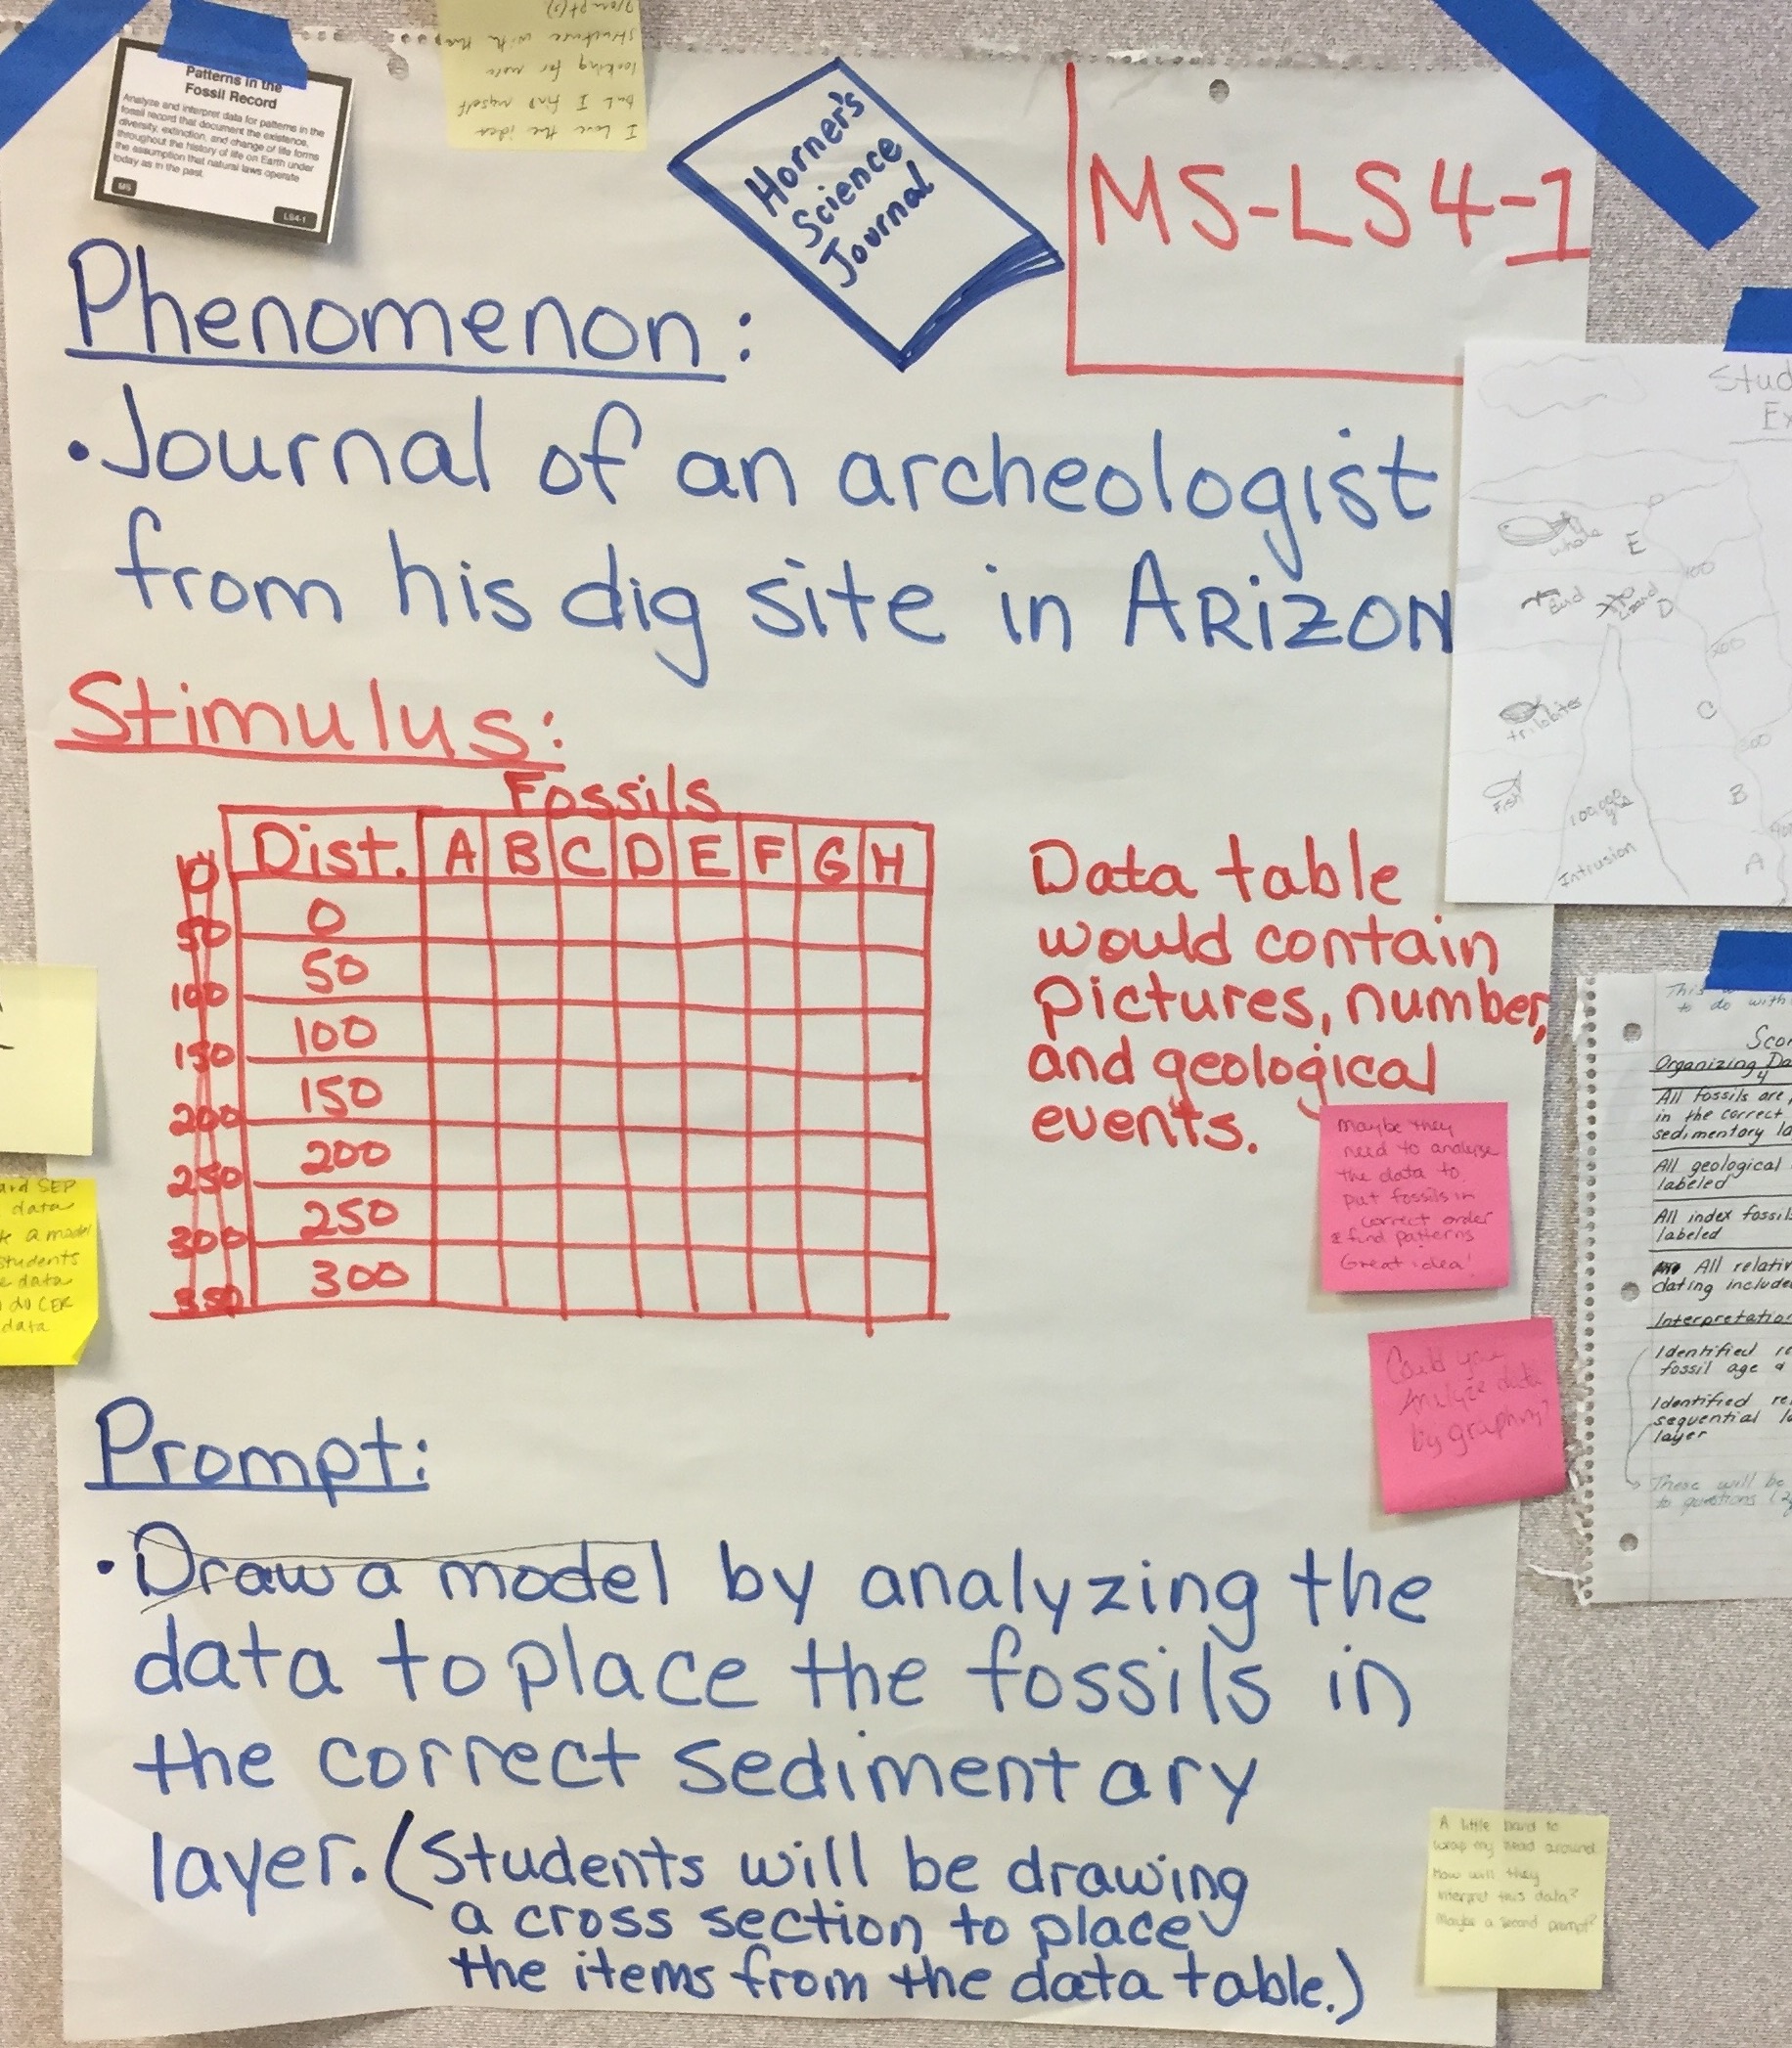 Patterns in the
Fossil Record
Analyze and interpret data for patterns in the
fossil record that document the existence,
diversity, extinction, and change of life forms
throughout the history of life on Earth under
the assumption that natural laws operate
today as in the past.
MS
LS4-1
I love the idea
but I find myself
looking for more
structure with the
prompt(s).
Horner's
Science
Journal
MS-LS4-1
Phenomenon:
• Journal of an archeologist
from his dig site in ARiZON
Stimulus:
Fossils
Dist. A B C D E F G H
0
50
100
150
200
250
300
0
50
100
150
200
250
300
350
Data table
would contain
pictures, number,
and geological
events.
Maybe they
need to analyze
the data to
put fossils in
correct order
& find patterns
Great idea!
Could you
Analyze data
by graphing?
Prompt:
• Draw a model by analyzing the
data to place the fossils in
the correct sedimentary
layer. (Students will be drawing
a cross section to place
the items from the data table.)
A little hard to
wrap my head around.
How will they
interpret this data?
Maybe a second prompt?
and SEP
data
a model
students
data
do CER
data
Stud
Ex
whale
E
100
Bird
Lizard
D
200
trilobites
C
300
Fish
B
100,000 yrs
400
Intrusion
A
This
to do with
Scor
Organizing Da
4
All fossils are
in the correct
sedimentary la
All geological
labeled
All index fossils
labeled
All relativ
dating include
Interpretation
Identified re
fossil age &
Identified re
sequential la
layer
These will be
to questions (2